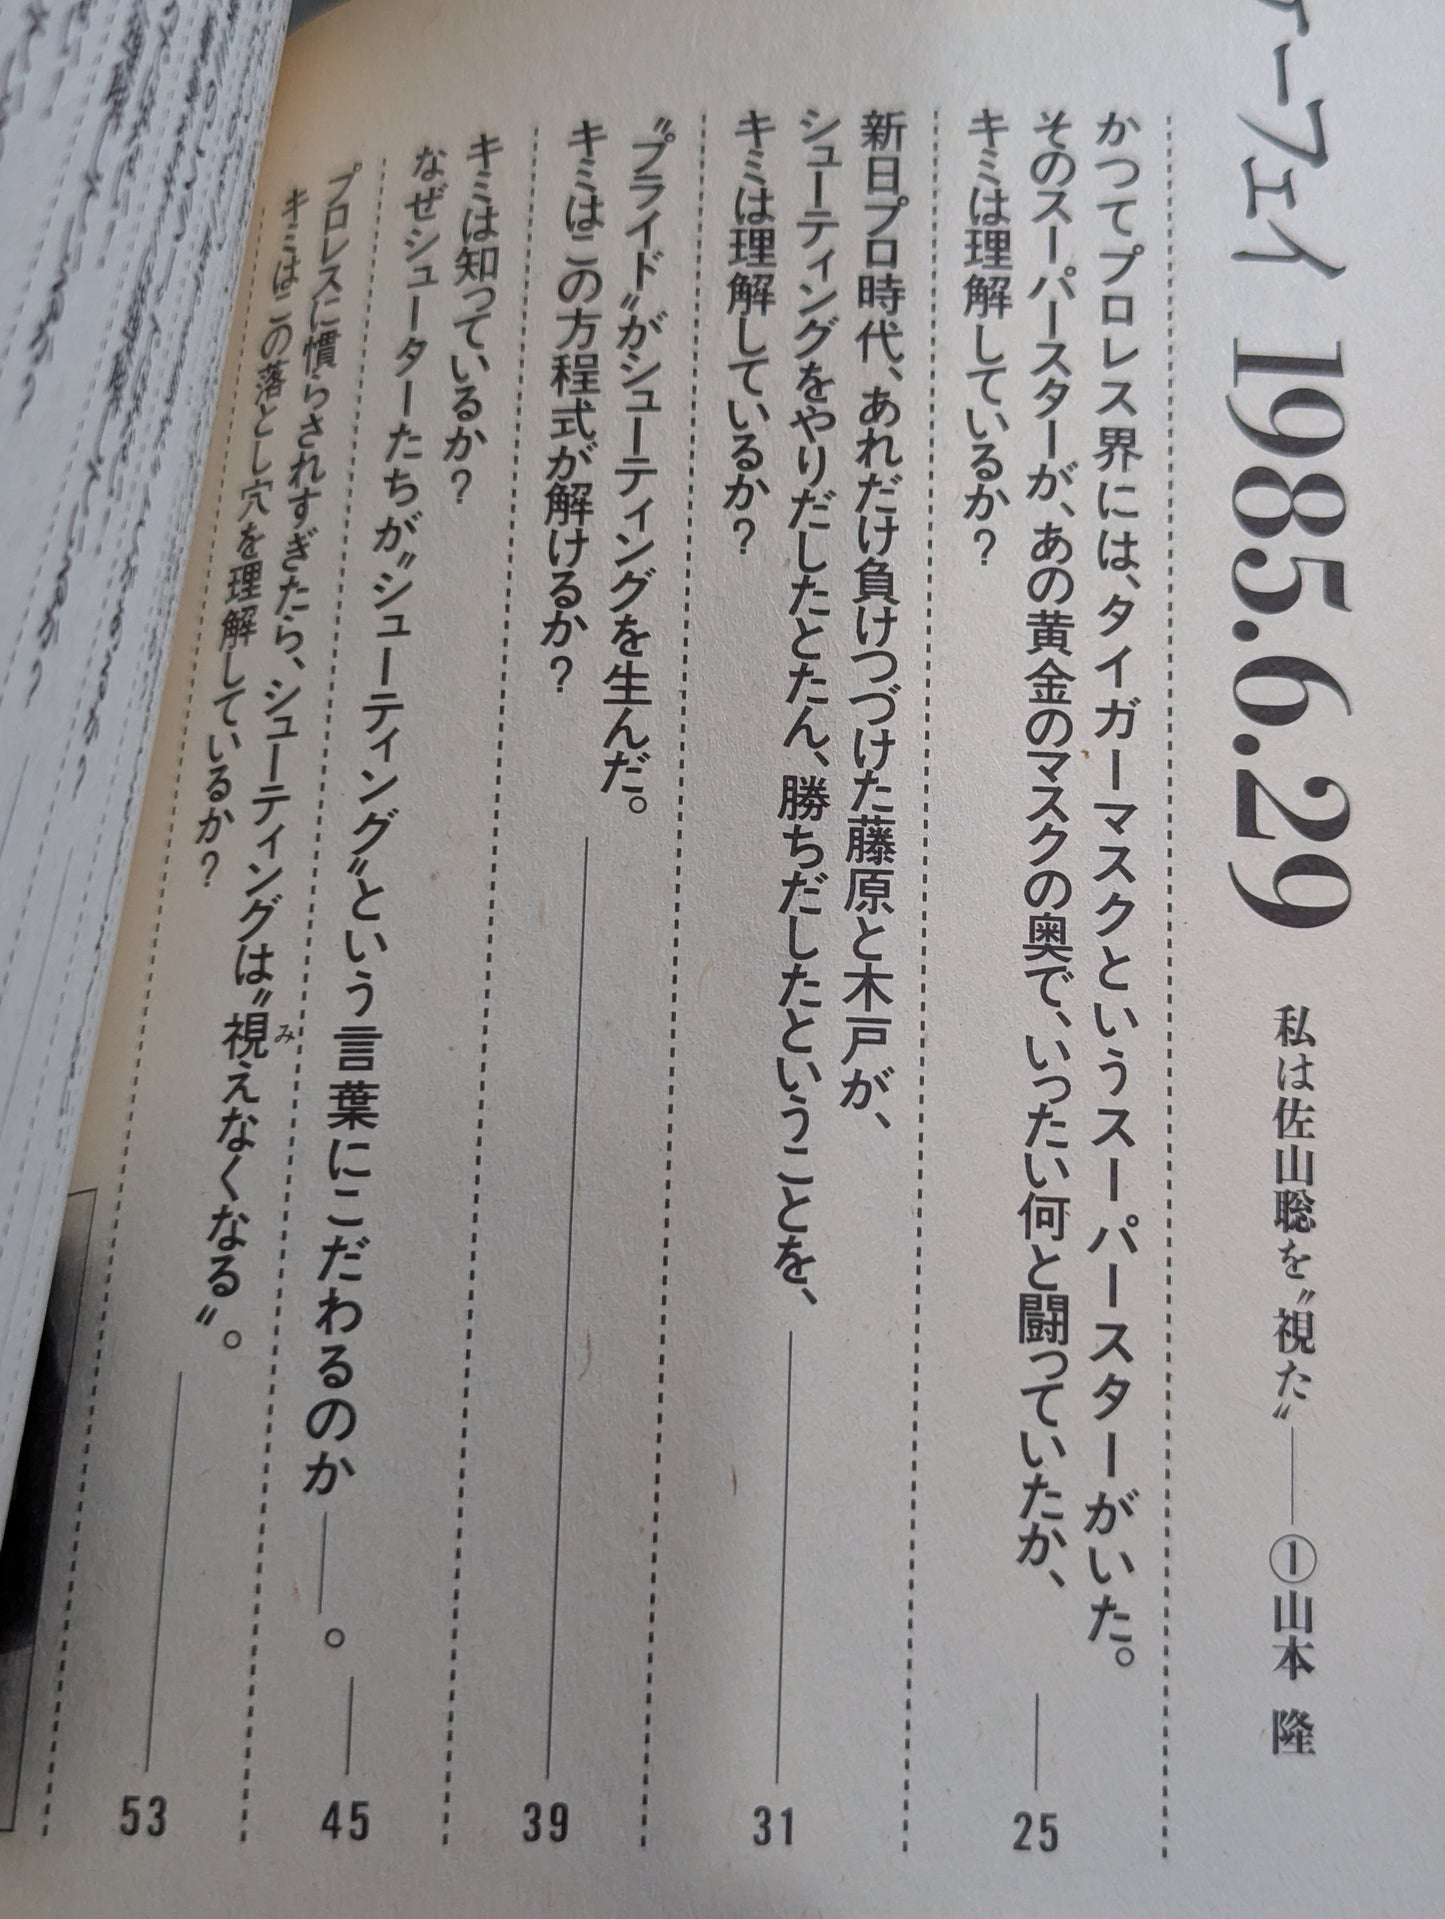 ケーフェイ 1985.6.29 私は佐山聡を〝視た〟——①山本 隆
かつてプロレス界には、タイガーマスクというスーパースターがいた。
そのスーパースターが、あの黄金のマスクの奥で、いったい何と闘っていたか、
キミは理解しているか? 25
新日プロ時代、あれだけ負けつづけた藤原と木戸が、
シューティングをやりだしたとたん、勝ちだしたということを、
キミは理解しているか? 31
〝プライド〟がシューティングを生んだ。
キミはこの方程式が解けるか? 39
キミは知っているか?
なぜシューターたちが〝シューティング〟という言葉にこだわるのか——。 45
プロレスに慣らされすぎたら、シューティングは〝視えなくなる〟。
み
キミはこの落とし穴を理解しているか? 53